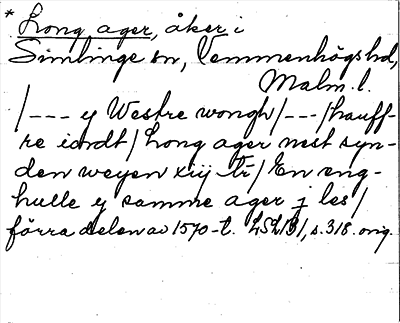 * Long ager, åker i
Simlinge sn, Vemmenhögs hd,
Malm. l.
/--- y Westre wongh /---/ hauff-
re iordt / Long ager nest syn-
den weyen xiij tr / En eng-
hulle y samme ager j les /
förra delen av 1570-t. LSLB1, s. 318. orig.